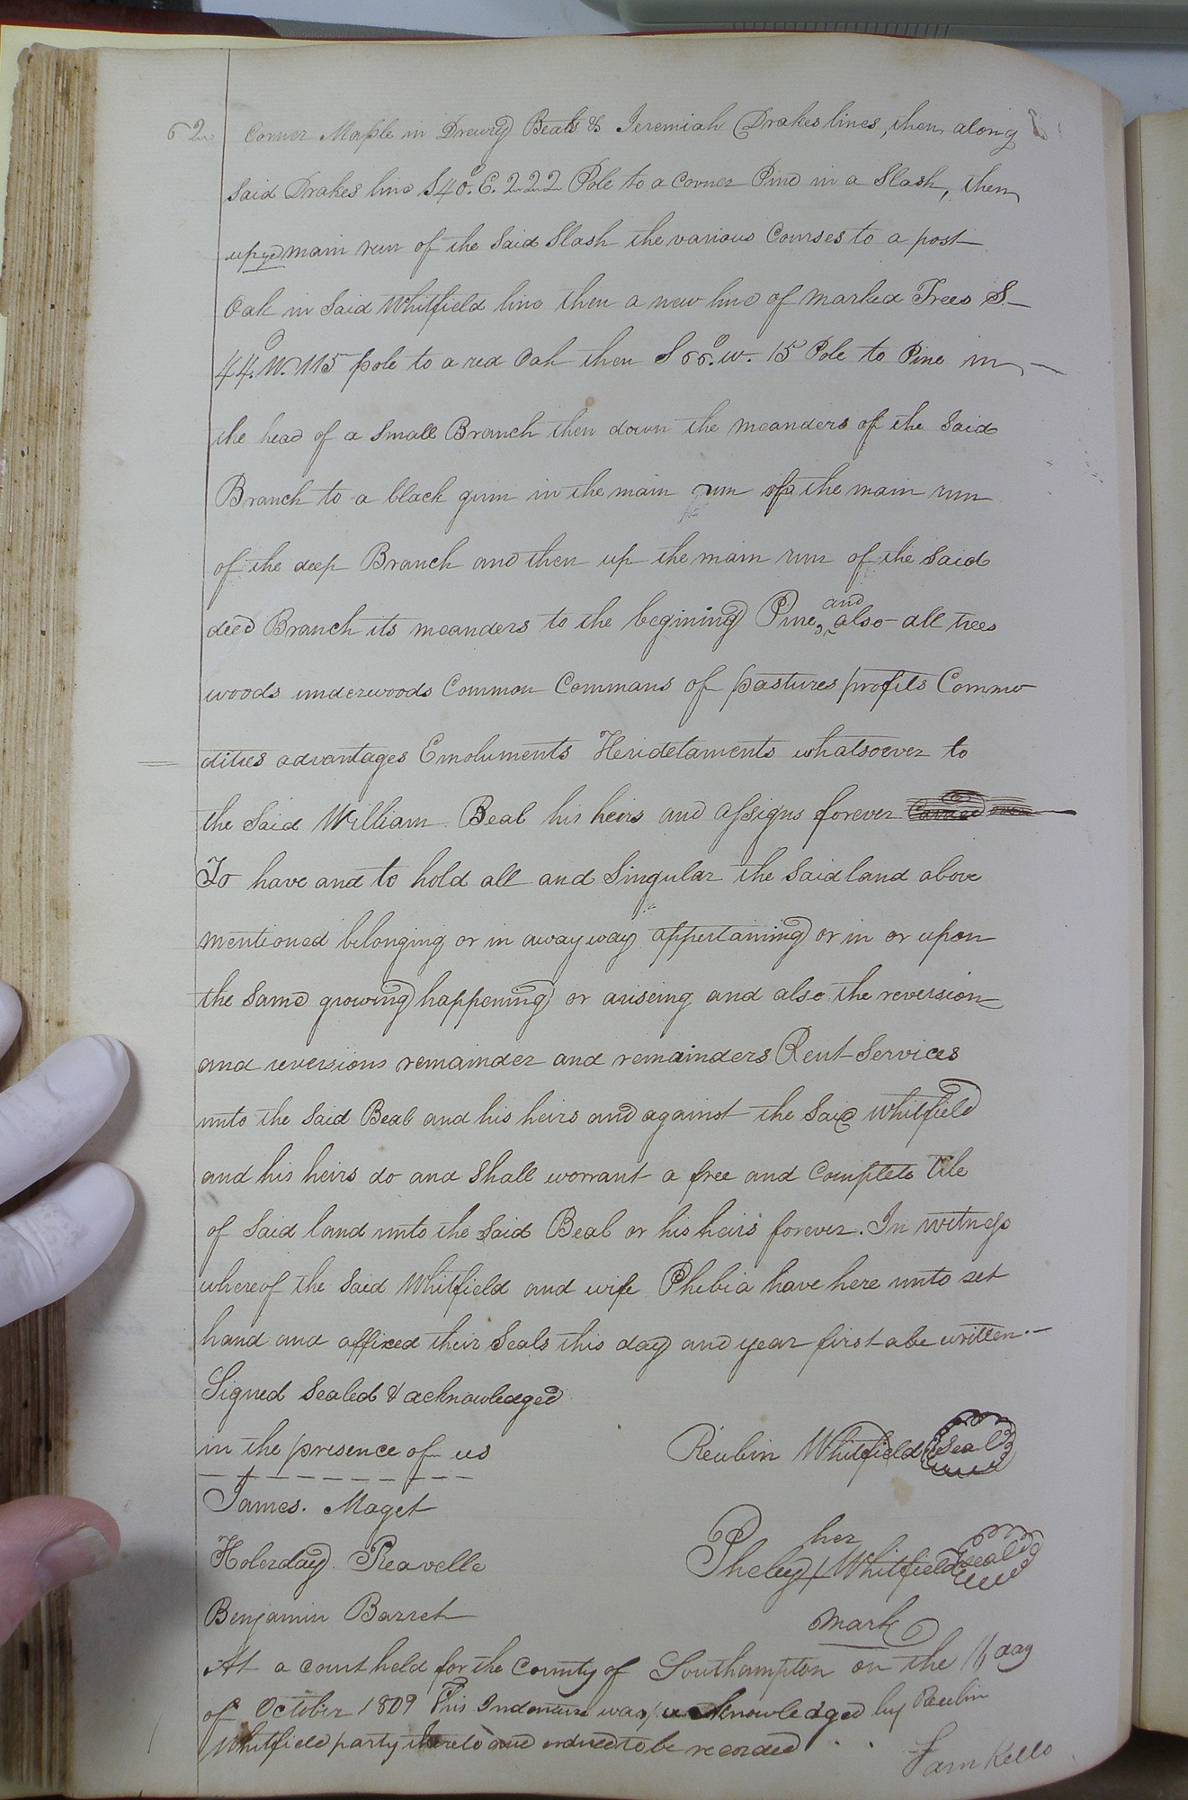 62 Corner Maple in Drewry Beals & Jeremiah Drakes lines, then along
Said Drakes line S40°. E. 222 Pole to a Corner Pine in a Slash, then
up ye main run of the Said Slash the various Courses to a post
Oak in Said Whitfield line then a new line of marked Trees S
44°. W. 115 pole to a red Oak then S 66°. W. 15 Pole to Pine in
the head of a Small Branch then down the meanders of the Said
Branch to a black gum in the main run of the main run
of the deep Branch and then up the main run of the Said
deed Branch its meanders to the begining Pine, and also all trees
woods underwoods Common Commans of pastures profits Commo
dities advantages Emoluments Heridetaments whatsoever to
the Said William Beal his heirs and assigns forever
To have and to hold all and Singular the Said land above
mentioned belonging or in away way appertaining or in or upon
the Same growing happening or ariseing and also the reversion
and reversions remainder and remainders Rent Services
unto the Said Beal and his heirs and against the Said Whitfield
and his heirs do and Shall worrant a free and Complete tile
of Said land unto the Said Beal or his heirs forever. In witness
whereof the Said Whitfield and wife Phebia have here unto set
hand and affixed their Seals this day and year first abe written.
Signed Sealed & acknowledged
in the presence of us
Reubin Whitfield Seal
James. Maget
her
Holerday Reavelle
Pheby + Whitfield seal
Benjamin Barret
mark
At a court held for the County of Southampton on the 16 day
of October 1809 This Indenture was acknowledged by Reubin
Whitfield party thereto and ordered to be recorded
Sam Kello